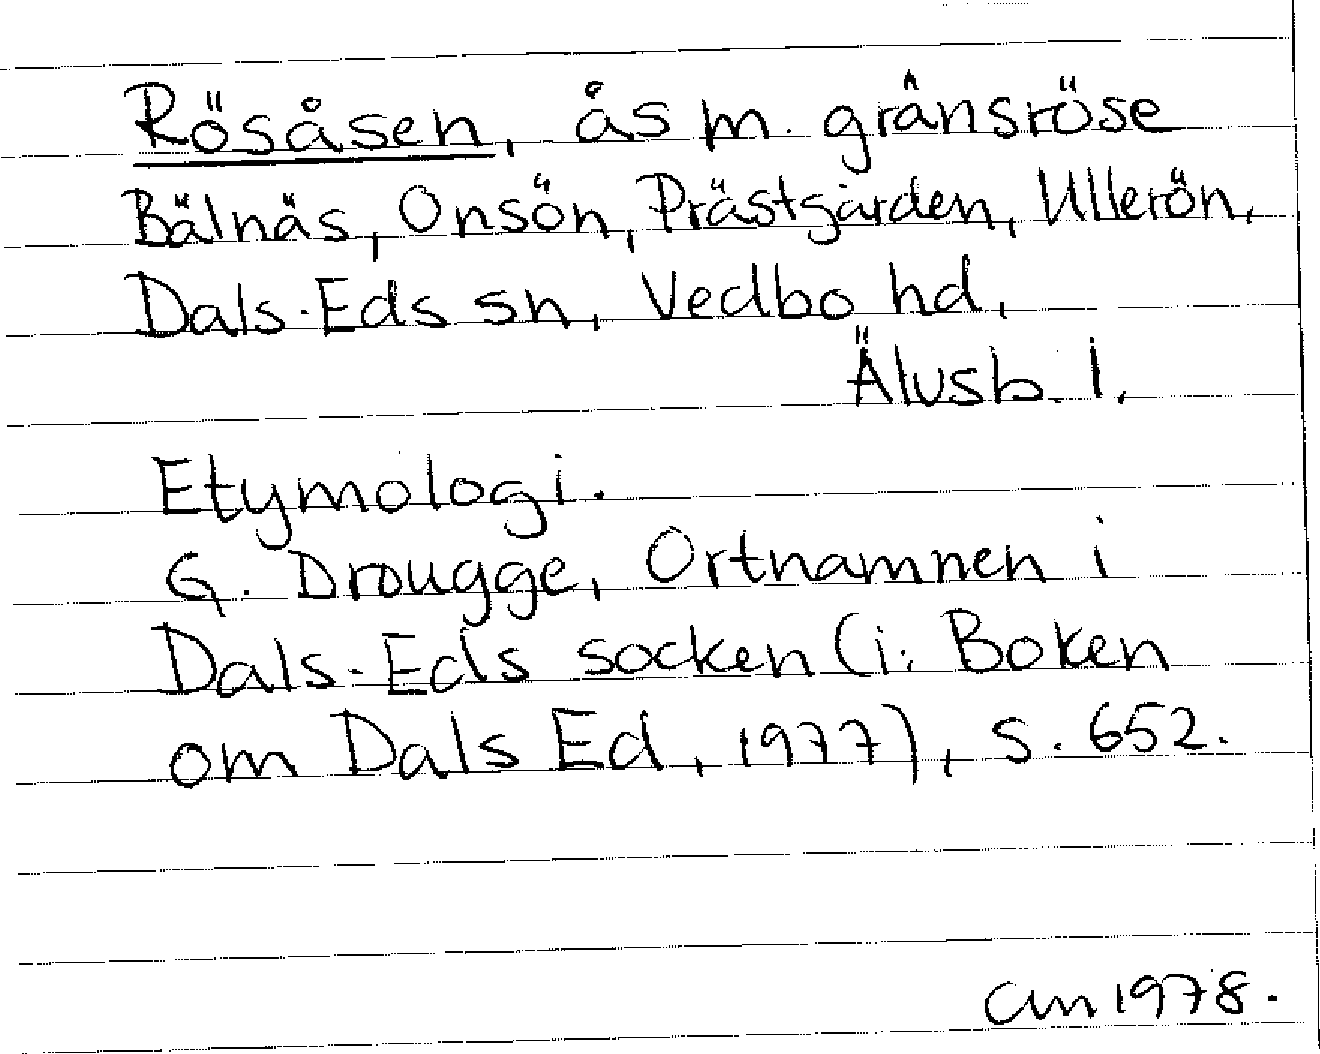 Rösåsen, ås m. gränsröse
Bälnäs, Onsön, Prästgården, Ullerön,
Dals-Eds sn, Vedbo hd,
Älvsb. l.
Etymologi.
G. Drougge, Ortnamnen i
Dals-Eds socken (i: Boken
om Dals Ed, 1977), s. 652.
CLM 1978.